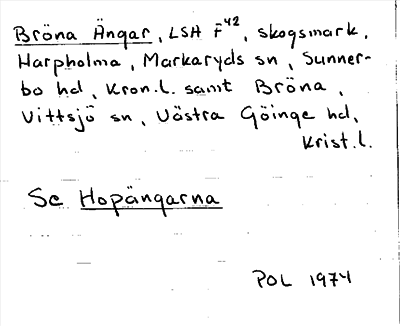 Bröna Ängar, LSA F⁴², skogsmark,
Harpholma, Markaryds sn, Sunner-
bo hd, Kron.l. samt Bröna,
Vittsjö sn, Västra Göinge hd,
Krist.l.
Se Hopängarna
POL 1974